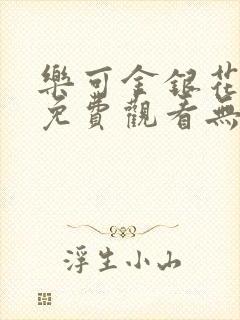 樂可金銀花
免費觀看無
浮生小山